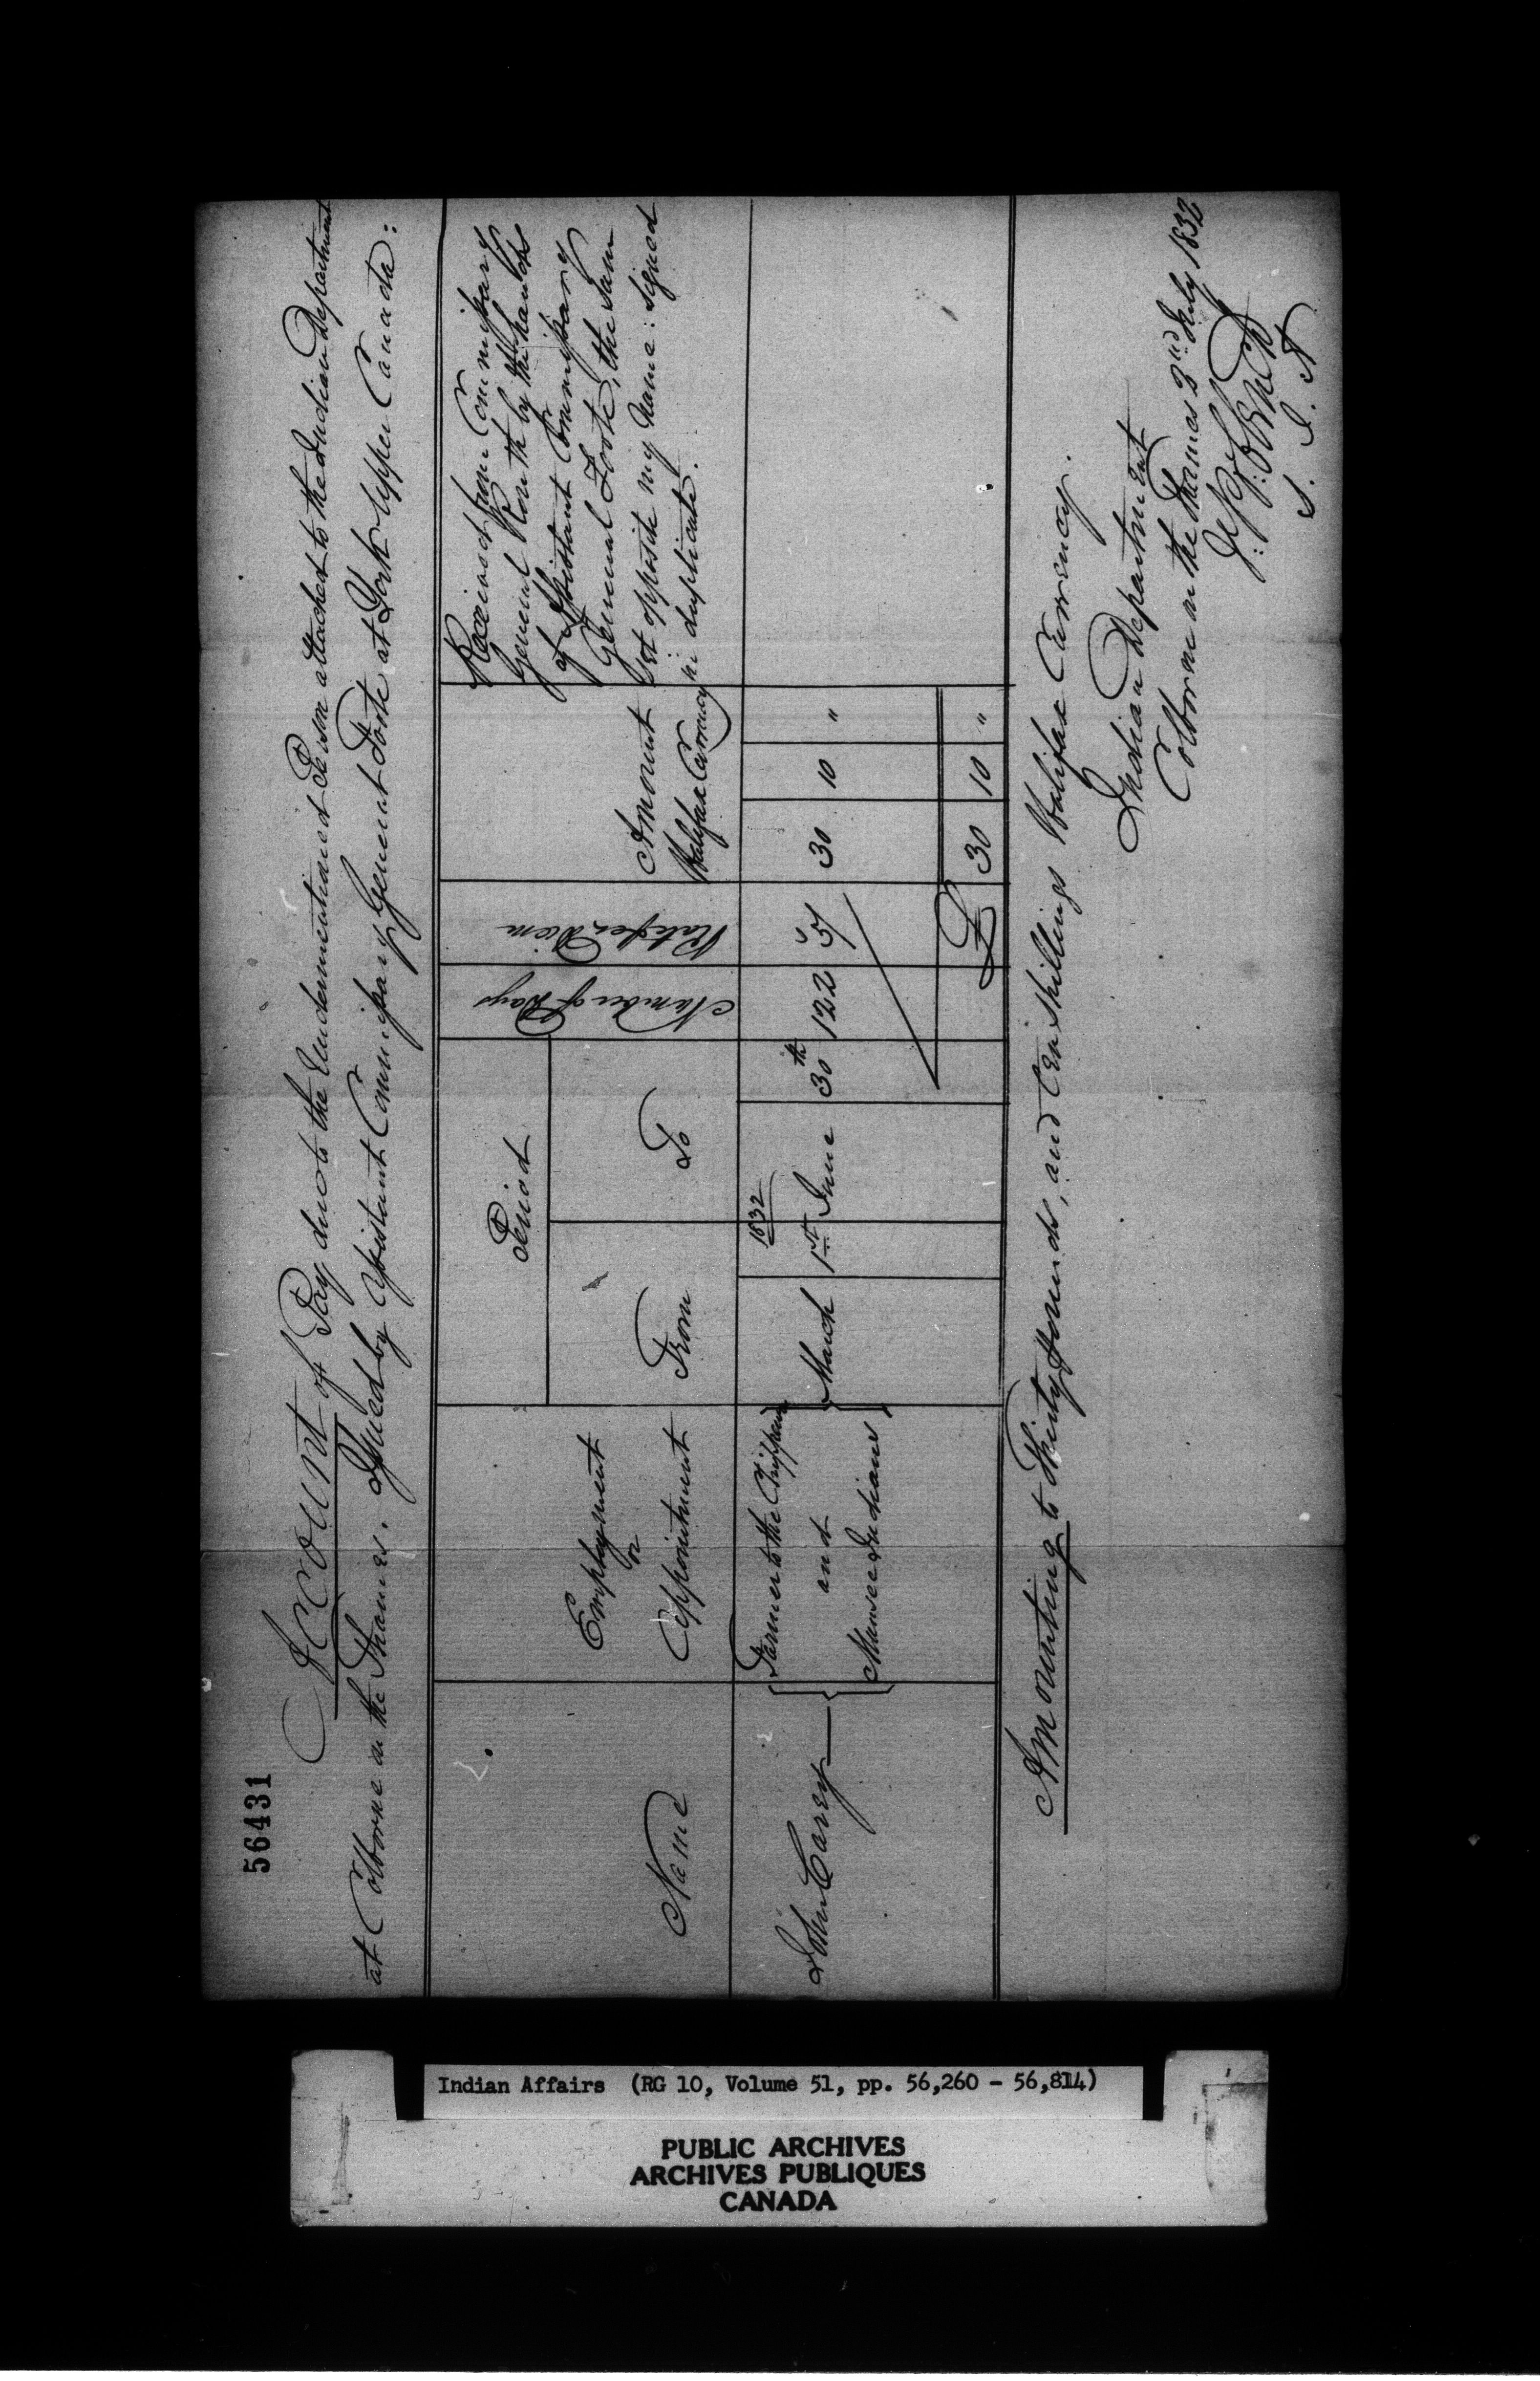 56431
Account of Pay due to the Undermentioned Person attached to the Indian Department
at Colborne on the Thames. Issued by Assistant Commissary General Foote at York Upper Canada:
Name
Employment
or
Appointment
Period
From
To
Number of Days
Rate per Diem
Amount
Halifax Currency
Received from Commissary
General Routh by the hands
of Assistant Commissary
General Foote, the sum
set opposite my Name: signed
in duplicate.
1832
John Carey
Farmer to the Chippawa
and
Munsee Indians
March 1st June 30th 122 5/ 30 10 "
£ 30 10 "
Amounting to Thirty Pounds, and Ten Shillings Halifax Currency.
Indian Department
Colborne on the Thames 2nd July 1832
S. I. A
Indian Affairs (RG 10, Volume 51, pp. 56,260 - 56,814)
PUBLIC ARCHIVES
ARCHIVES PUBLIQUES
CANADA